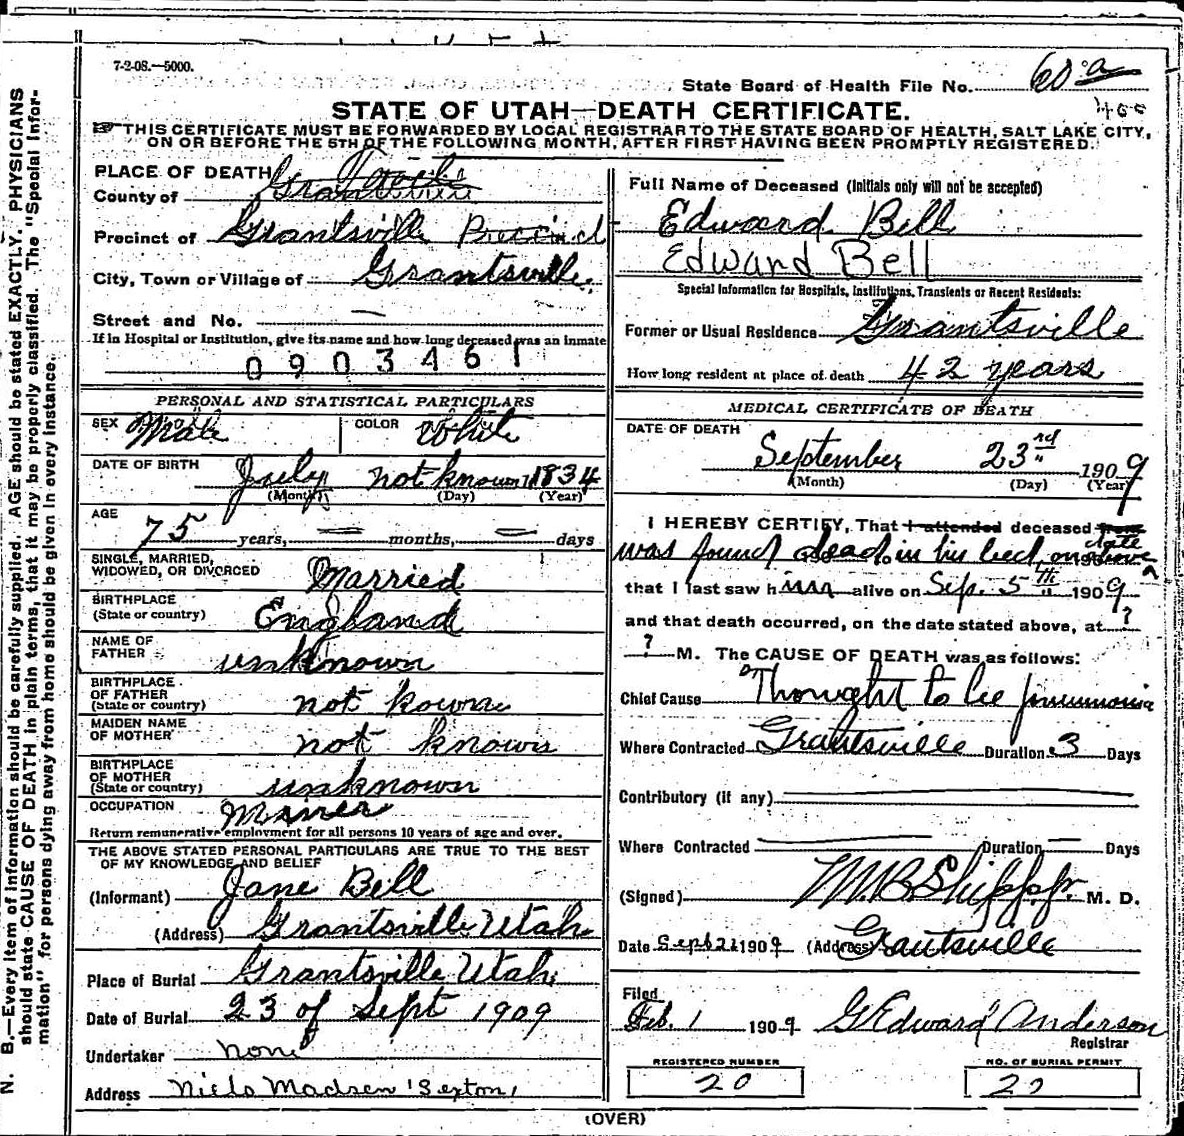 7-2-08.—5000.
State Board of Health File No. 60 a
STATE OF UTAH—DEATH CERTIFICATE.
THIS CERTIFICATE MUST BE FORWARDED BY LOCAL REGISTRAR TO THE STATE BOARD OF HEALTH, SALT LAKE CITY,
ON OR BEFORE THE 5TH OF THE FOLLOWING MONTH, AFTER FIRST HAVING BEEN PROMPTLY REGISTERED.
N. B.—Every item of information should be carefully supplied. AGE should be stated EXACTLY. PHYSICIANS
should state CAUSE OF DEATH in plain terms, that it may be properly classified. The "Special Infor-
mation" for persons dying away from home should be given in every instance.
PLACE OF DEATH
County of Tooele
Precinct of Grantsville Precinct
City, Town or Village of Grantsville.
Street and No. —
If in Hospital or Institution, give its name and how long deceased was an inmate
0903461
PERSONAL AND STATISTICAL PARTICULARS
SEX Male COLOR White
DATE OF BIRTH July not known 1834
(Month) (Day) (Year)
AGE
75 years, = months, = days
SINGLE, MARRIED,
WIDOWED, OR DIVORCED Married
BIRTHPLACE
(State or country) England
NAME OF
FATHER unknown
BIRTHPLACE
OF FATHER
(State or country) not kown
MAIDEN NAME
OF MOTHER not known
BIRTHPLACE
OF MOTHER
(State or country) unknown
OCCUPATION Miner
Return remunerative employment for all persons 10 years of age and over.
THE ABOVE STATED PERSONAL PARTICULARS ARE TRUE TO THE BEST
OF MY KNOWLEDGE AND BELIEF
(Informant) Jane Bell
(Address) Grantsville Utah
Place of Burial Grantsville Utah
Date of Burial 23 of Sept 1909
Undertaker none
Address Niels Madsen Sexton
Full Name of Deceased (Initials only will not be accepted)
Edward Bell
Edward Bell
Special Information for Hospitals, Institutions, Transients or Recent Residents:
Former or Usual Residence Grantsville
How long resident at place of death 42 years
MEDICAL CERTIFICATE OF DEATH
DATE OF DEATH
September 23rd 1909
(Month) (Day) (Year)
I HEREBY CERTIFY, That I attended deceased from
was found dead in his bed on above date
that I last saw him alive on Sep. 5th 1909
and that death occurred, on the date stated above, at ?
? M. The CAUSE OF DEATH was as follows:
Chief Cause "Thought to be pneumonia
Where Contracted Grantsville Duration 3 Days
Contributory (if any)
Where Contracted — Duration — Days
(Signed) M. D.
Date Sept 1909 (Address) Grantsville
Filed
Feb. 1 1909 G Edward Anderson
Registrar
REGISTERED NUMBER
20
NO. OF BURIAL PERMIT
(OVER)